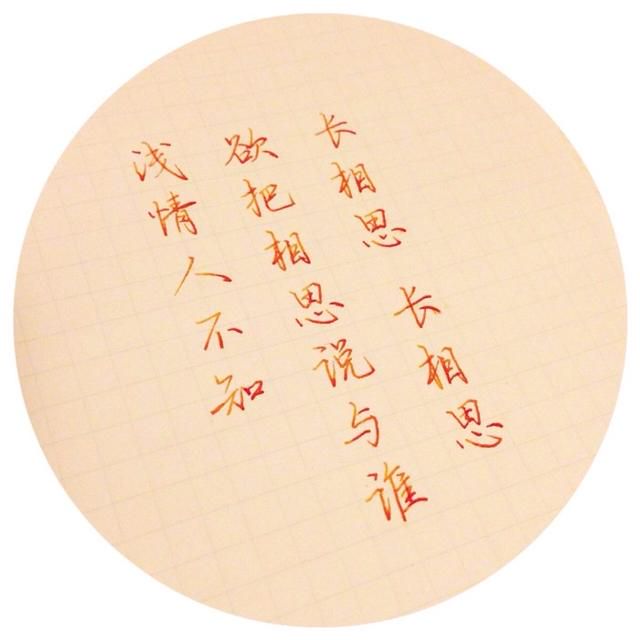 长相思 长相思
欲把相思说与谁
浅情人不知